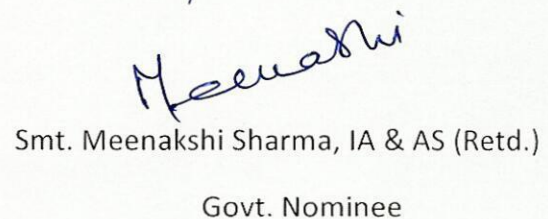 Meenakshi
Smt. Meenakshi Sharma, IA & AS (Retd.)
Govt. Nominee